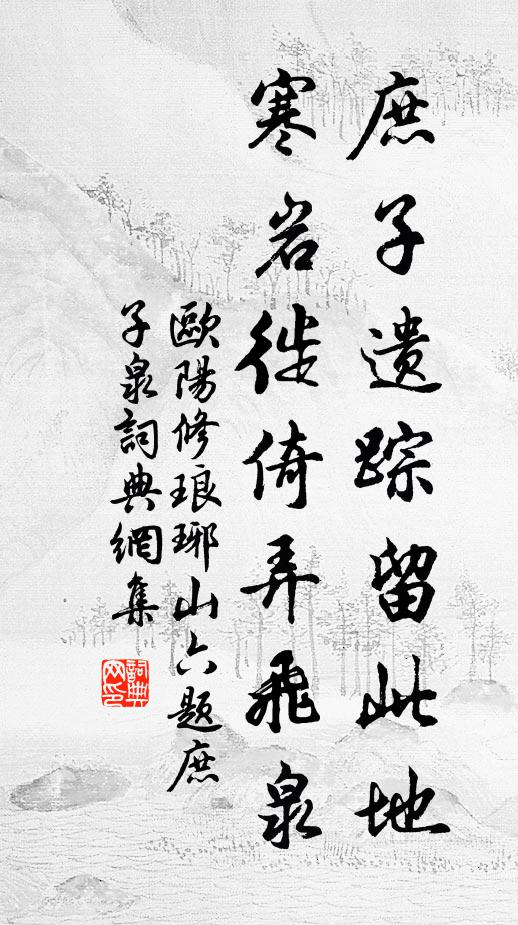 庶子遗踪留此地
寒岩徙倚弄飛泉
歐陽修琅琊山六题庶
子泉詞典網集
詞典网印